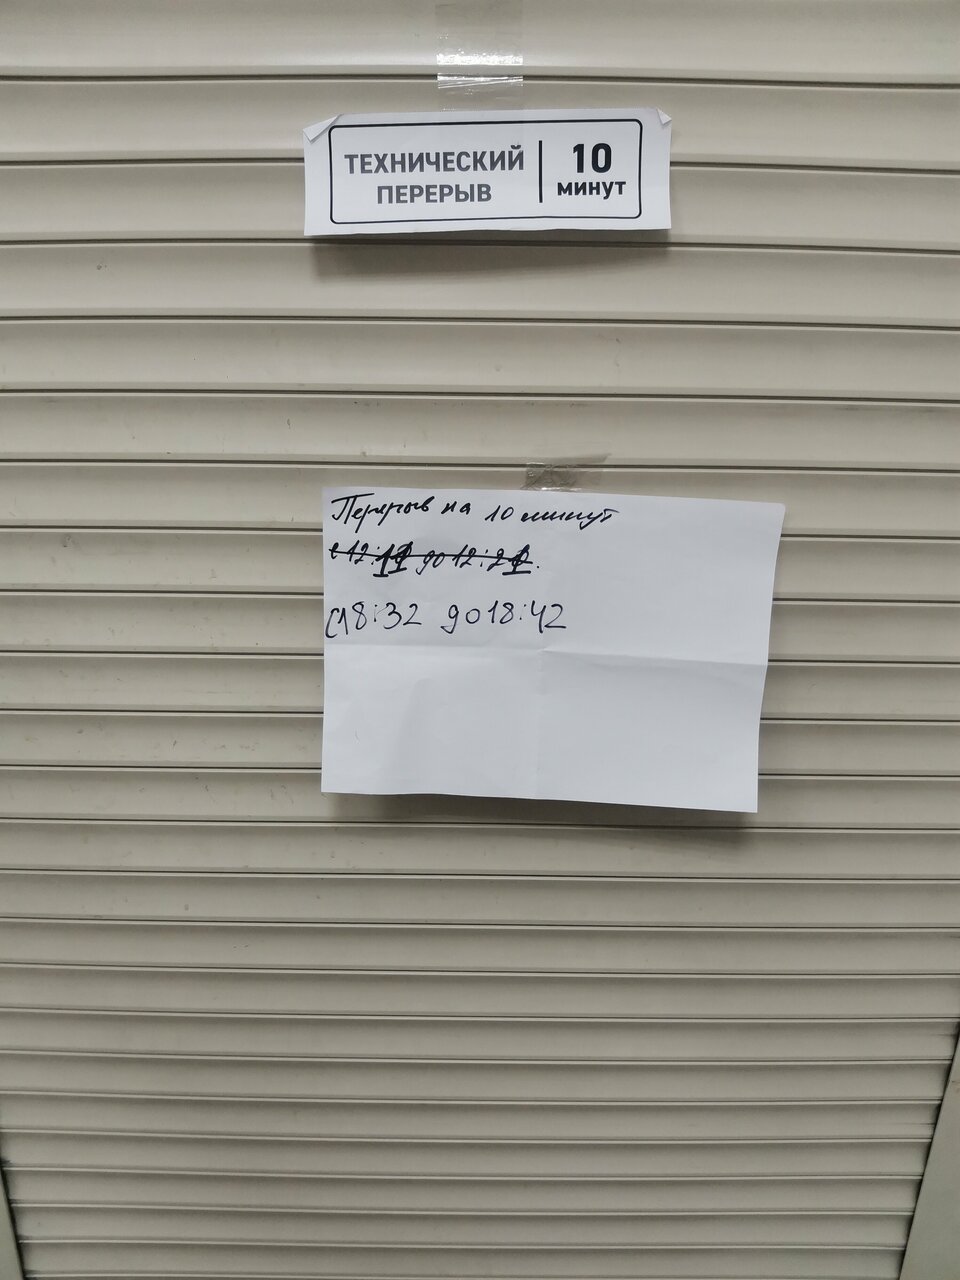 ТЕХНИЧЕСКИЙ ПЕРЕРЫВ
10 минут
Перерыв на 10 минут
с 12:11 до 12:21.
с 18:32 до 18:42